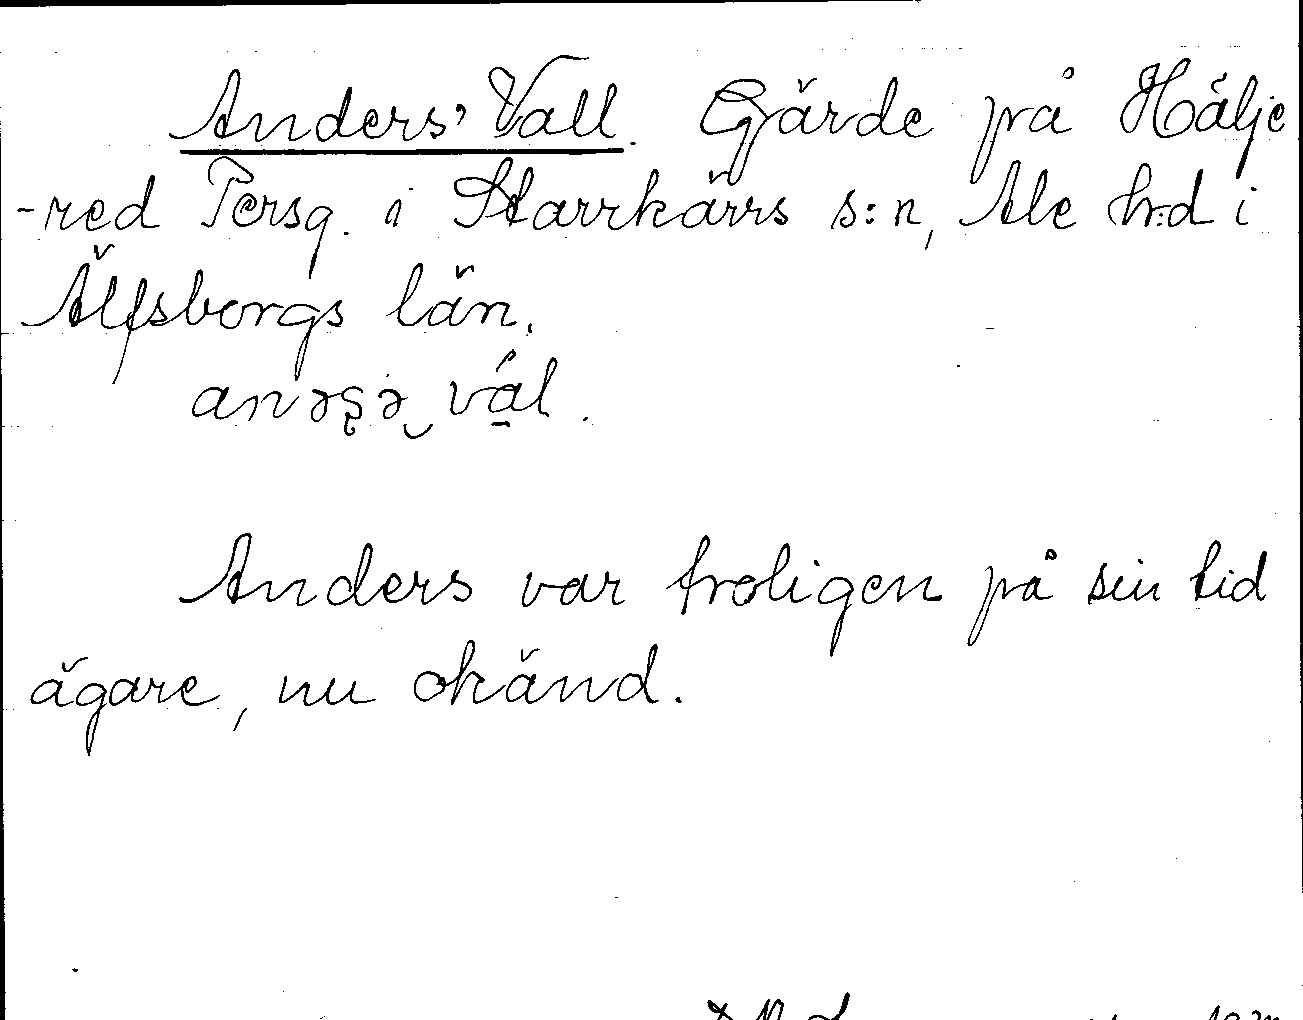 Anders' Vall. Gärde på Hälje
-red Persg. i Starrkärrs s:n, Ale h:d i
Älfsborgs län.
anəʂə‿vál.
Anders var troligen på sin tid
ägare, nu okänd.